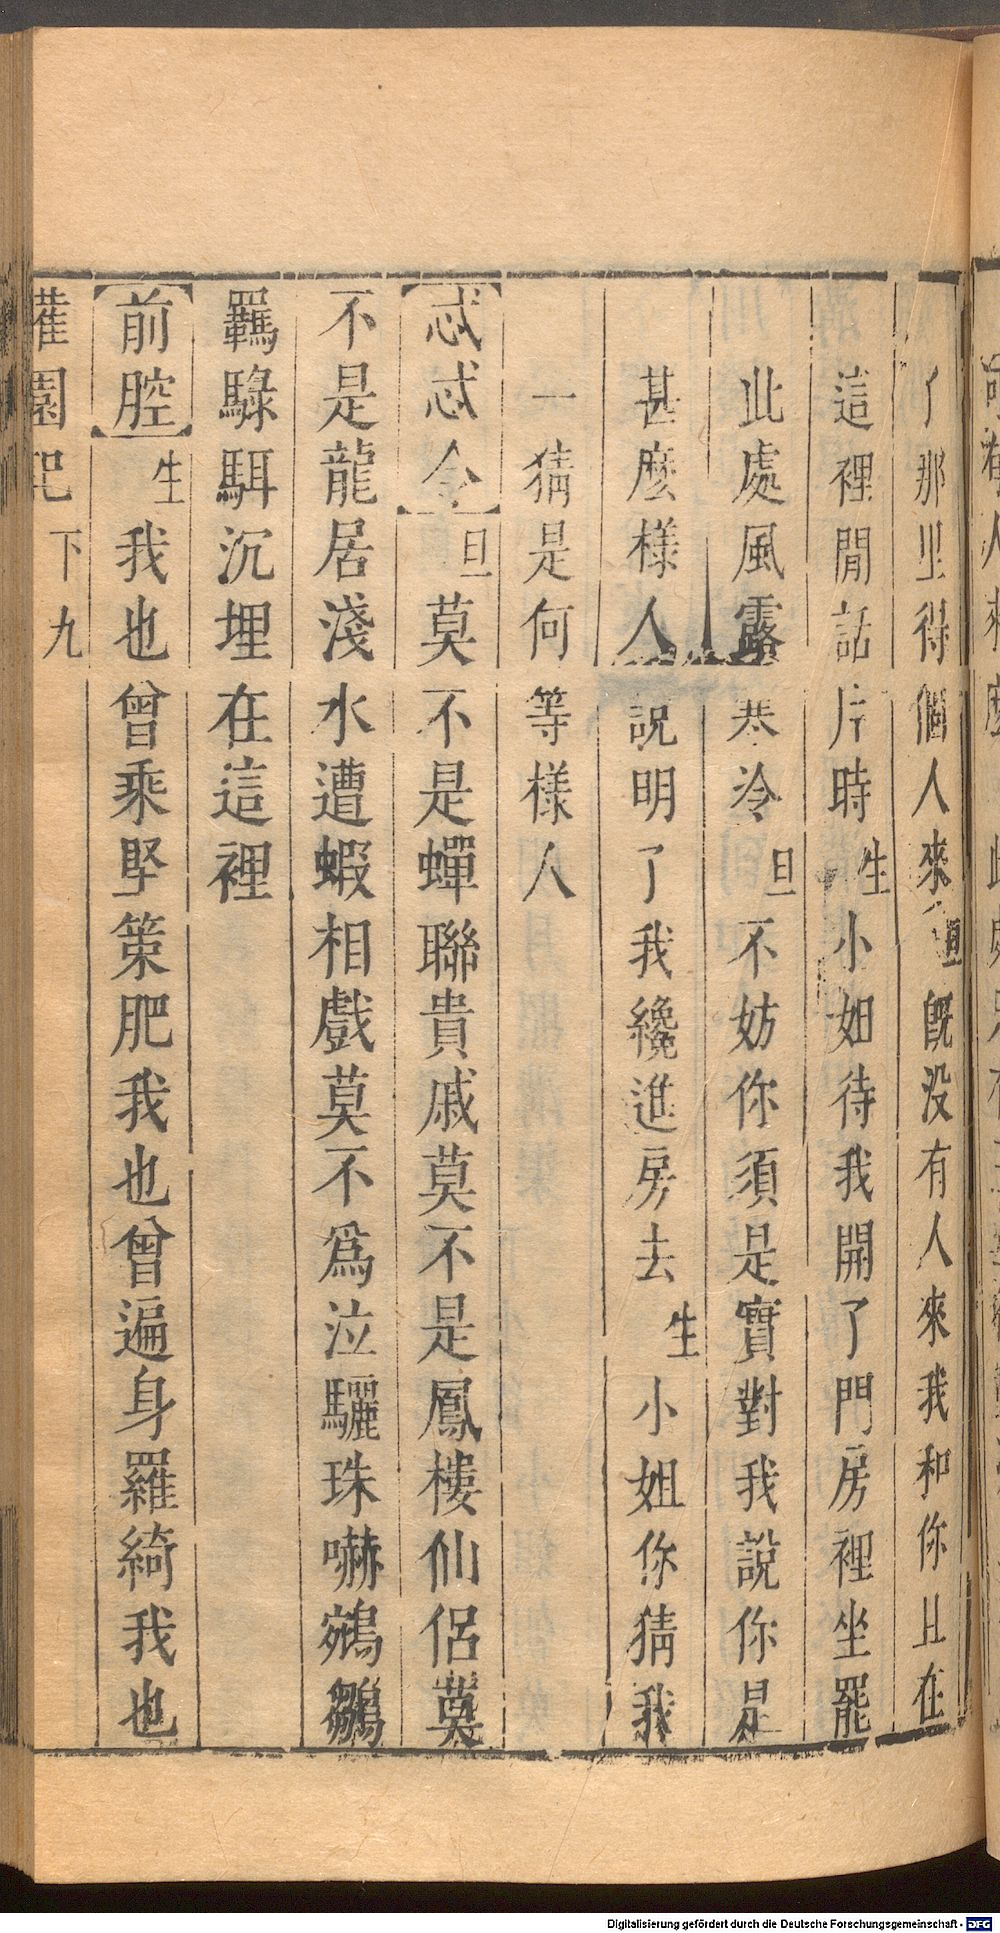 了那里得個人來旦旣没有人來我和你且在
這裡閒話片時生小姐待我開了門房裡坐罷
此處風露寒冷旦不妨你須是實對我說你是
甚麼樣人說明了我纔進房去生小姐你猜我
一猜是何等樣人
忒忒令旦莫不是蟬聯貴戚莫不是鳳樓仙侶莫
不是龍居淺水遭蝦相戲莫不爲泣驪珠嚇鵷鶵
羈騄駬沉埋在這裡
前腔生我也曾乘堅策肥我也曾遍身羅綺我也
灌園記 下 九
Digitalisierung gefördert durch die Deutsche Forschungsgemeinschaft - DFG